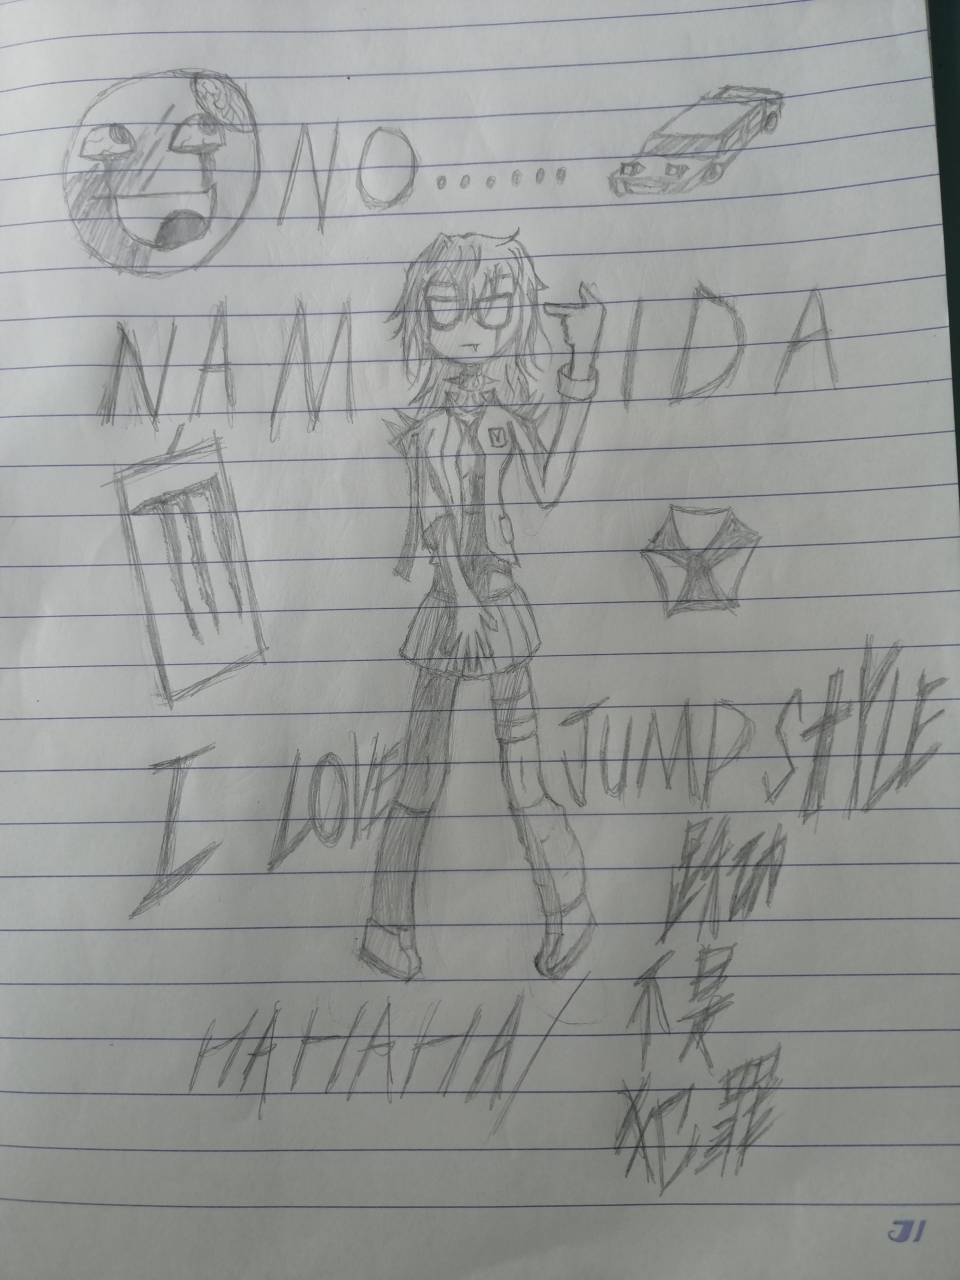 NO......
NAM IDA
I LOVE JUMPSTYLE
不是
犯罪
HAHAHA
31